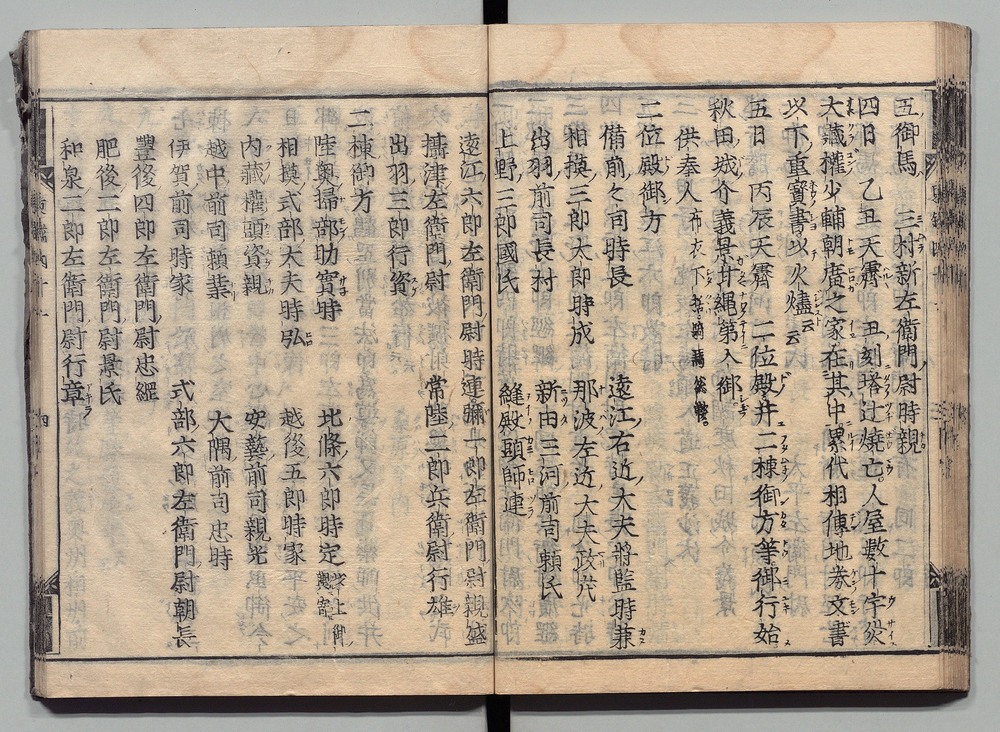 五御馬　三村新左衛門尉時親
四日　乙丑天霽　丑刻塔辻燒亡人屋數十宇災
大藏權少輔朝廣之家在其中累代相傳地券文書
以下重寶書以火爐云云
五日　丙辰天霽　二位殿并二棟御方等御行始
秋田城介義景甘繩第入御
供奉人　布衣下
二位殿御方
備前々司時長　遠江右近大夫將監時兼
相摸三郎太郎時成　那波左近大夫政茂
出羽前司長村　新田三河前司頼氏
上野三郎國氏　縫殿頭師連
遠江六郎左衛門尉時連　彌一郎左衛門尉親盛
攝津左衛門尉　常陸二郎兵衛尉行雄
出羽三郎行資
二棟御方
陸奧掃部助實時　北條六郎時定
相摸式部大夫時弘　越後五郎時家
内藏權頭資親　安藝前司親光
越中前司頼業　大隅前司忠時
伊賀前司時家　式部六郎左衛門尉朝長
豐後四郎左衛門尉忠綱
肥後二郎左衛門尉景氏
和泉二郎左衛門尉行章